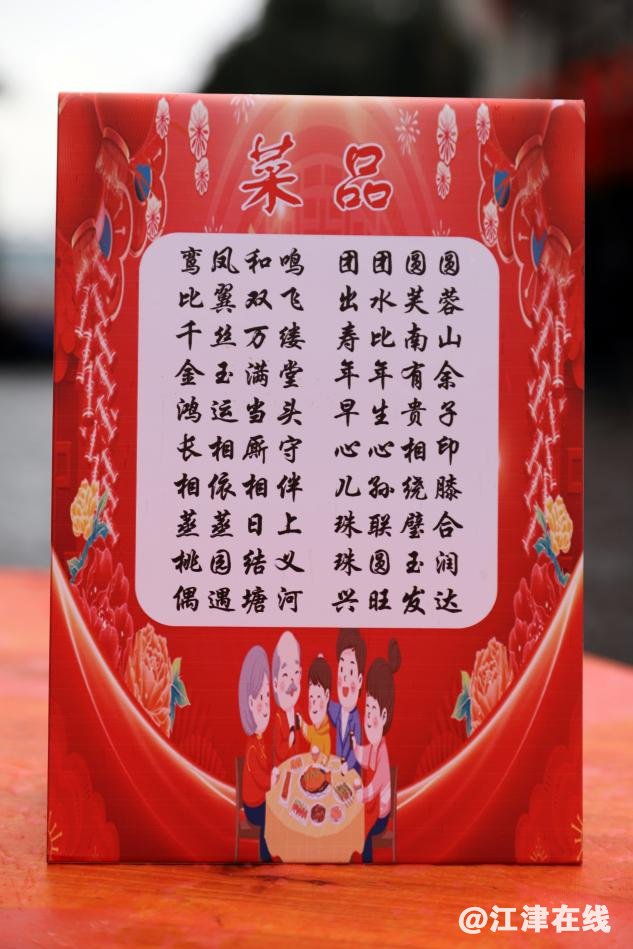 菜品
鸾凤和鸣 团团圆圆
比翼双飞 出水芙蓉
千丝万缕 寿比南山
金玉满堂 年年有余
鸿运当头 早生贵子
长相厮守 心心相印
相依相伴 儿孙绕膝
蒸蒸日上 珠联璧合
桃园结义 珠圆玉润
偶遇塘河 兴旺发达
@江津在线